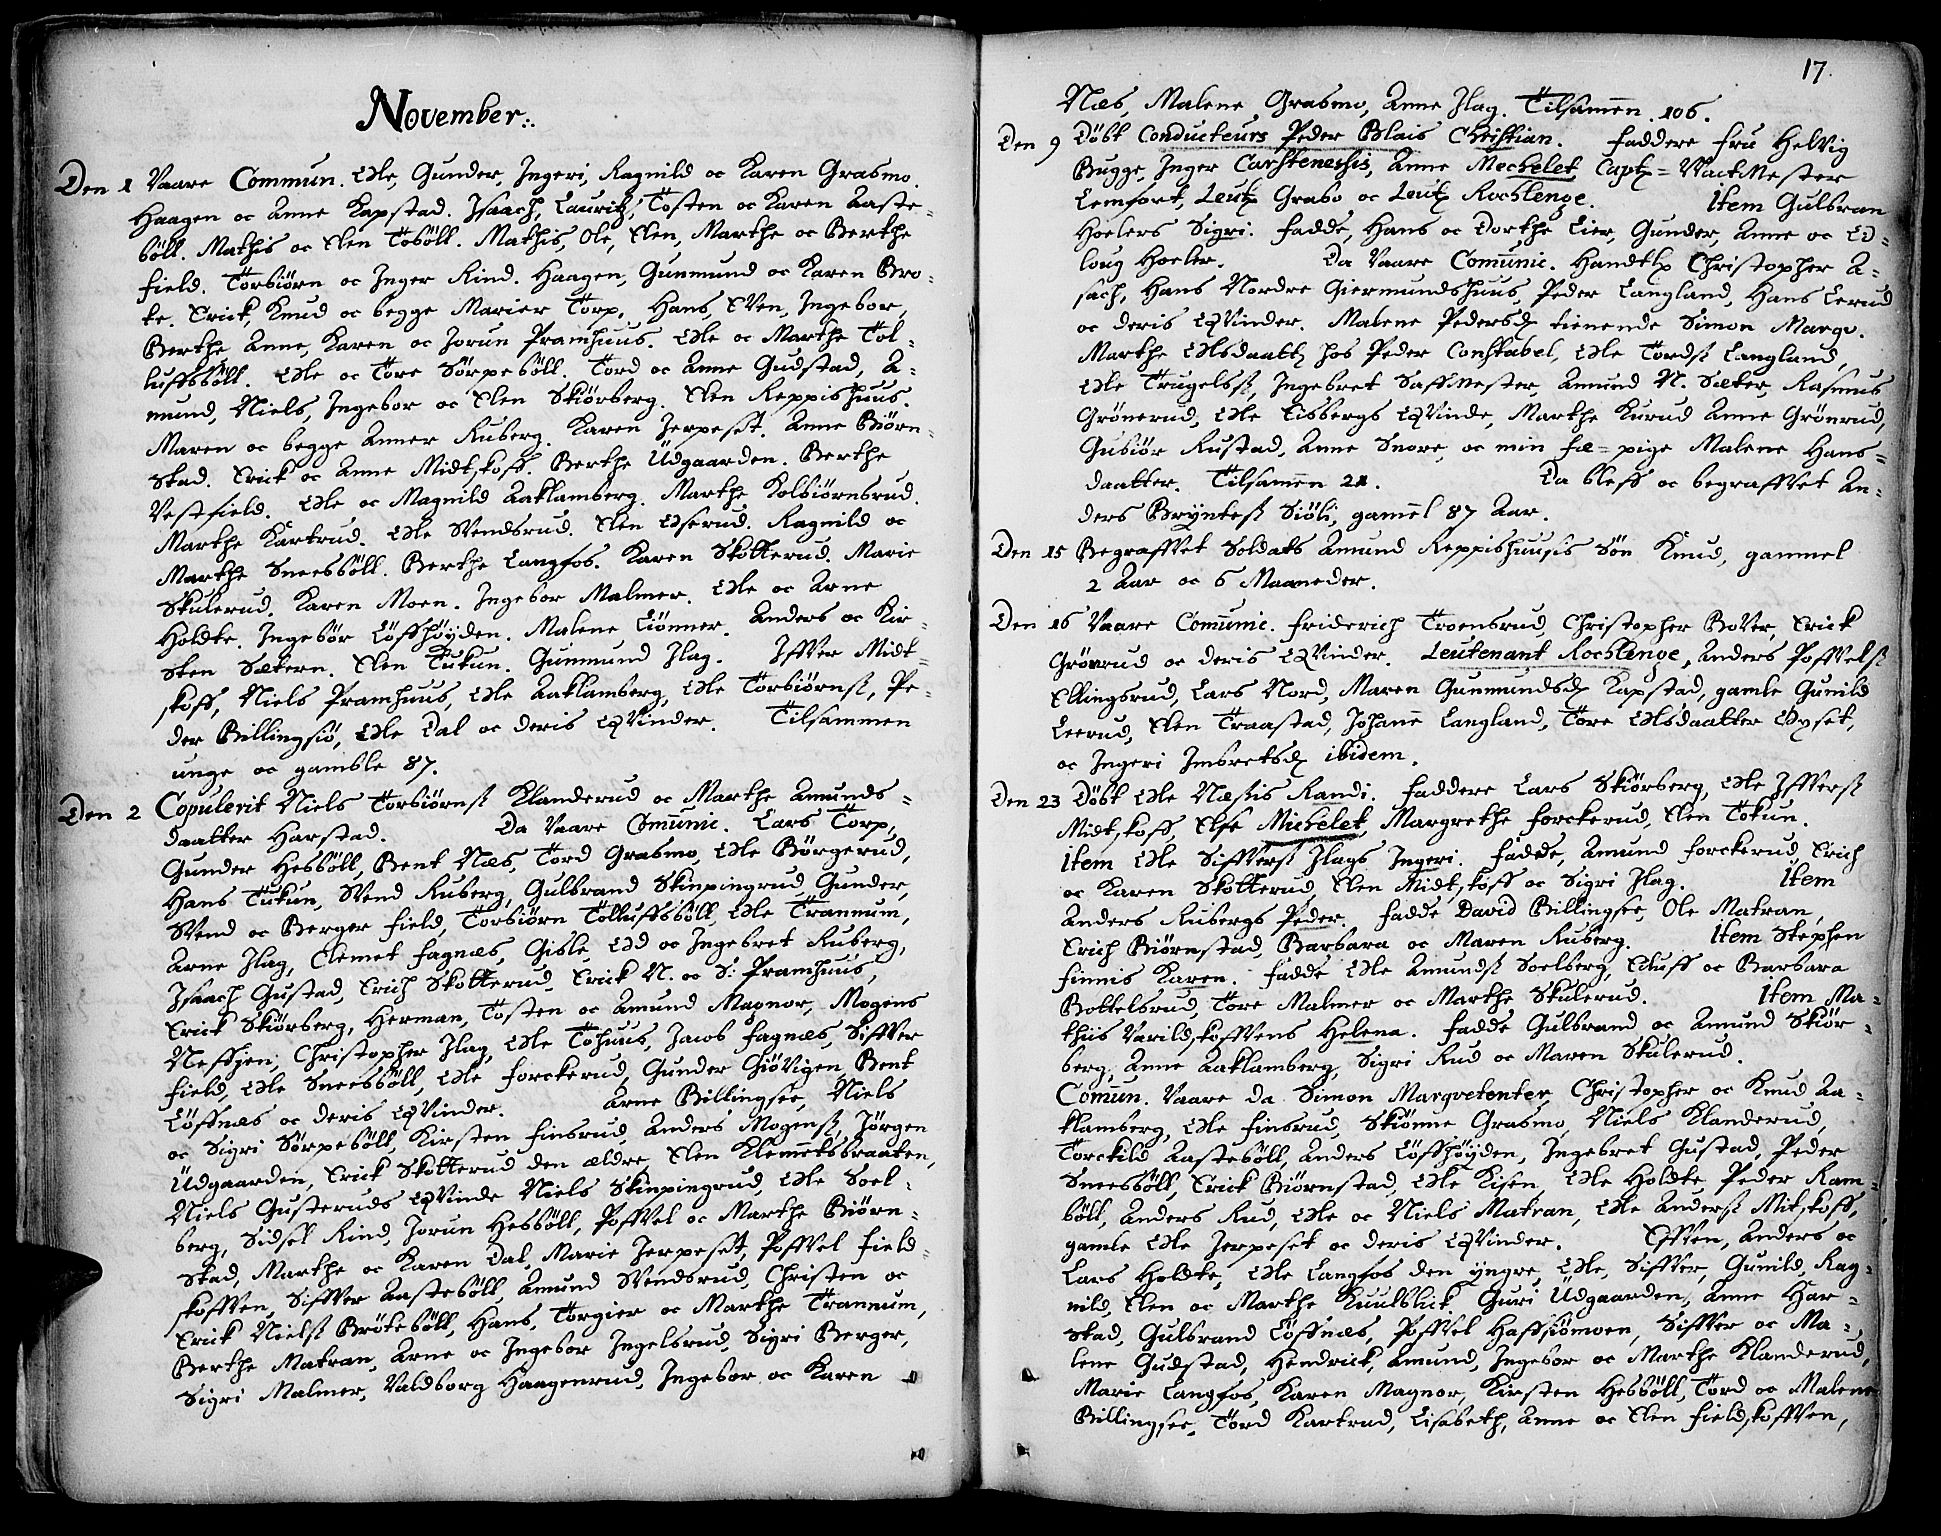 November.
Den 1 Vaare Commun. Ole, Gunder, Ingeri, Ragnild oc Karen Grasmo.
Haagen oc Anne Kapstad. Isaach, Lauritz, Tosten oc Karen Aaste=
böll. Mathis oc Elen Toböll. Mathis, Ole, Elen, Marthe oc Berthe
field. Torbiörn oc Inger Rind. Haagen, Gunmund oc Karen Bro=
te. Erick, Knud oc begge Marier Torp. Hans, Even, Ingebor,
Berthe Anne, Karen oc Jorun Pramhuus. Ole oc Marthe Tol=
luffsböll. Ole oc Tore Sörpeböll. Tord oc Anne Gudstad, A=
mund, Niels, Ingebor oc Elen Skiörberg. Elen Reppishuus.
Maren oc begge Anner Ruberg. Karen Jerpeset. Anne Biörn=
stad. Erick oc Anne Midtskoff. Berthe Üdgaarden. Berthe
Vestfield. Ole oc Magnild Aaklamberg. Marthe Kolbiörnsrud.
Marthe Kartrud. Ole Svendsrud. Elen Oserud. Ragnild oc
Marthe Sneesböll. Berthe Langfos. Karen Skotterud. Marie
Skulerud. Karen Moen. Ingebor Malmer. Ole oc Arne
Holdte. Ingebör Löffhöyden. Malene Liönner. Anders oc Kir=
sten Sætern. Elen Tukun. Gunmund Ilag. Iffver Midt=
skoff, Niels Pramhuus, Ole Aaklamberg, Ole Torbiörnss, Pe=
der Billingsiö, Ole Dal oc deris Qvinder. Tilsammen
unge oc gamble 87.
Den 2 Copulerit Niels Torbiörnss Klanderud oc Marthe Amunds=
daatter Harstad. Da Vaare Comunic. Lars Torp,
Gunder Hesböll, Bent Næs, Tord Grasmo, Ole Börgerud,
Hans Tukun, Svend Ruberg, Gulbrand Skinpingrud, Gunder,
Svend oc Berger field, Torbiörn Tolluffsböll, Ole Trannum,
Arne Ilag, Clemet fagnæs, Gisle, Od oc Ingebret Ruberg,
Isaach Gustad, Erich Skotterud, Erick N. oc S: Pramhuus,
Erick Skiörberg, Herman, Tosten oc Amund Magnor, Mogens
Neffsien, Christopher Ilag, Ole Tohuus, Jacob fagnæs, Siffver
field, Ole Sneesböll, Ole forckerud, Gunder Giövigen, Bent
Löffnæs oc deris Qvinder. Arne Billingsee, Niels
oc Sigri Sörpeböll, Kirsten finsrud, Anders Mogenss, Jörgen
Üdgaarden, Erick Skotterud den ældre, Elen Klemmetsbraaten,
Niels Gusteruds Qvinde Niels Skinpingrud, Ole Soel=
berg, Sidsel Rind, Jorun Hesböll, Poffvel oc Marthe Biörn=
stad, Marthe oc Karen Dal, Marie Jerpeset, Poffvel field=
skoffven, Siffver Aasteböll, Amund Svendsrud, Christen oc
Erick Nielss Bröteböll, Hans, Torgier oc Marthe Trannum,
Berthe Matran, Arne oc Ingebor Ingelsrud, Sigri Berger,
Sigri Malmer, Valdborg Haagenrud, Ingebor oc Karen
17.
Næs, Malene Grasmo, Anne Ilag. Tilsamen 106.
Den 9 Döbt Conducteurs Peder Blais Christian. faddere fru Helvig
Bugge, Inger Carstenessis, Anne Mechelet Capt= VactMester
Lemfort, Leut Grabo oc Leut Rochlenge. Item Gulbran
Hoelers Sigri. fadde, Hans oc Dorthe Lier, Gunder, Anne oc Od=
loug Hoeler. Da Vaare Comunic. Handtl Christopher A=
sach, Hans Nordre Giermundshuus, Peder Langland, Hans Lerud
oc deris Qvinder. Malene Pedersd tienende Simon Marqv.
Marthe Olsdaatt hos Peder Constabel, Ole Tordss Langland,
Ole Trugelss, Ingebret SaffMester, Amund N. Sæter, Rasmus
Grönerud, Ole Lisbergs Qvinde, Marthe Kurud Anne Grönrud,
Gubiör Rustad, Anne Snore, oc min fæ=pige Malene Hans=
daatter. Tilsamen 21. Da bleff oc begraffvet An=
ders Bryntess Siöli, gamel 87 Aar.
Den 15 Begraffvet Soldats Amund Reppishuusis Sön Knud, gammel
2 Aar oc 6 Maaneder.
Den 16 Vaare Comunic. friderich Troensrud, Christopher Bover, Erick
Grönrud oc deris Qvinder. Leutenant Rochlenge, Anders Poffvelss
Ellingsrud, Lars Nord, Maren Gunmundsd Kapstad, gamle Gunild
Leerud, Elen Traastad, Johane Langland, Tore Olsdaatter Opset,
oc Ingeri Imbretsd ibidem.
Den 23 Döbt Ole Næssis Randi. faddere Lars Skiörberg, Ole Iffverss
Midtskoff, Else Michelet, Margrethe forckerud, Elen Tokun.
Item Ole Siffverss Ilags Ingeri. fadde, Amund forckerud, Erich
oc Karen Skotterud Elen Midtskoff oc Sigri Ilag. Item
Anders Rubergs Peder. fadde David Billingsee, Ole Matran,
Erich Biörnstad, Barbara oc Maren Ruberg. Item Stephen
finnis Karen. fadde Ole Amundss Soelberg, Eluff oc Barbara
Bottelsrud, Tore Malmer oc Marthe Skulerud. Item Ma=
this Varildskoffvens Helena. fadde Gulbrand oc Amund Skiör=
berg, Anne Aaklamberg, Sigri Rud oc Maren Skulerud.
Comun. Vaare da Simon Marqvetenter, Christopher oc Knud Aa=
klamberg, Ole finsrud, Skiönne Grasmo, Niels Klanderud,
Torckild Aasteböll, Anders Löffhöyden, Ingebret Gustad, Peder
Sneesböll, Erick Biörnstad, Ole Kisen, Ole Holdte Peder Ram=
böll, Anders Rud, Ole oc Niels Matran, Ole Anderss Mitskoff,
gamle Ole Jerpeset oc deris Qvinder. Effven, Anders oc
Lars Holdte, Ole Langfos den yngre, Ole, Siffver, Gunild, Rag=
nild, Elen oc Marthe Kuulblick. Guri Üdgaarden, Anne Har=
stad, Gulbrand Löffnæs, Poffvel Haffsiömoen, Siffver oc Ma=
lene Gudstad, Hendrick, Amund, Ingebor oc Marthe Klanderud,
Marie Langfos, Karen Magnor, Kirsten Hesböll, Tord oc Malene
Billingsee, Tord Kartrud, Lisabeth, Anne oc Elen fieldskoffven,